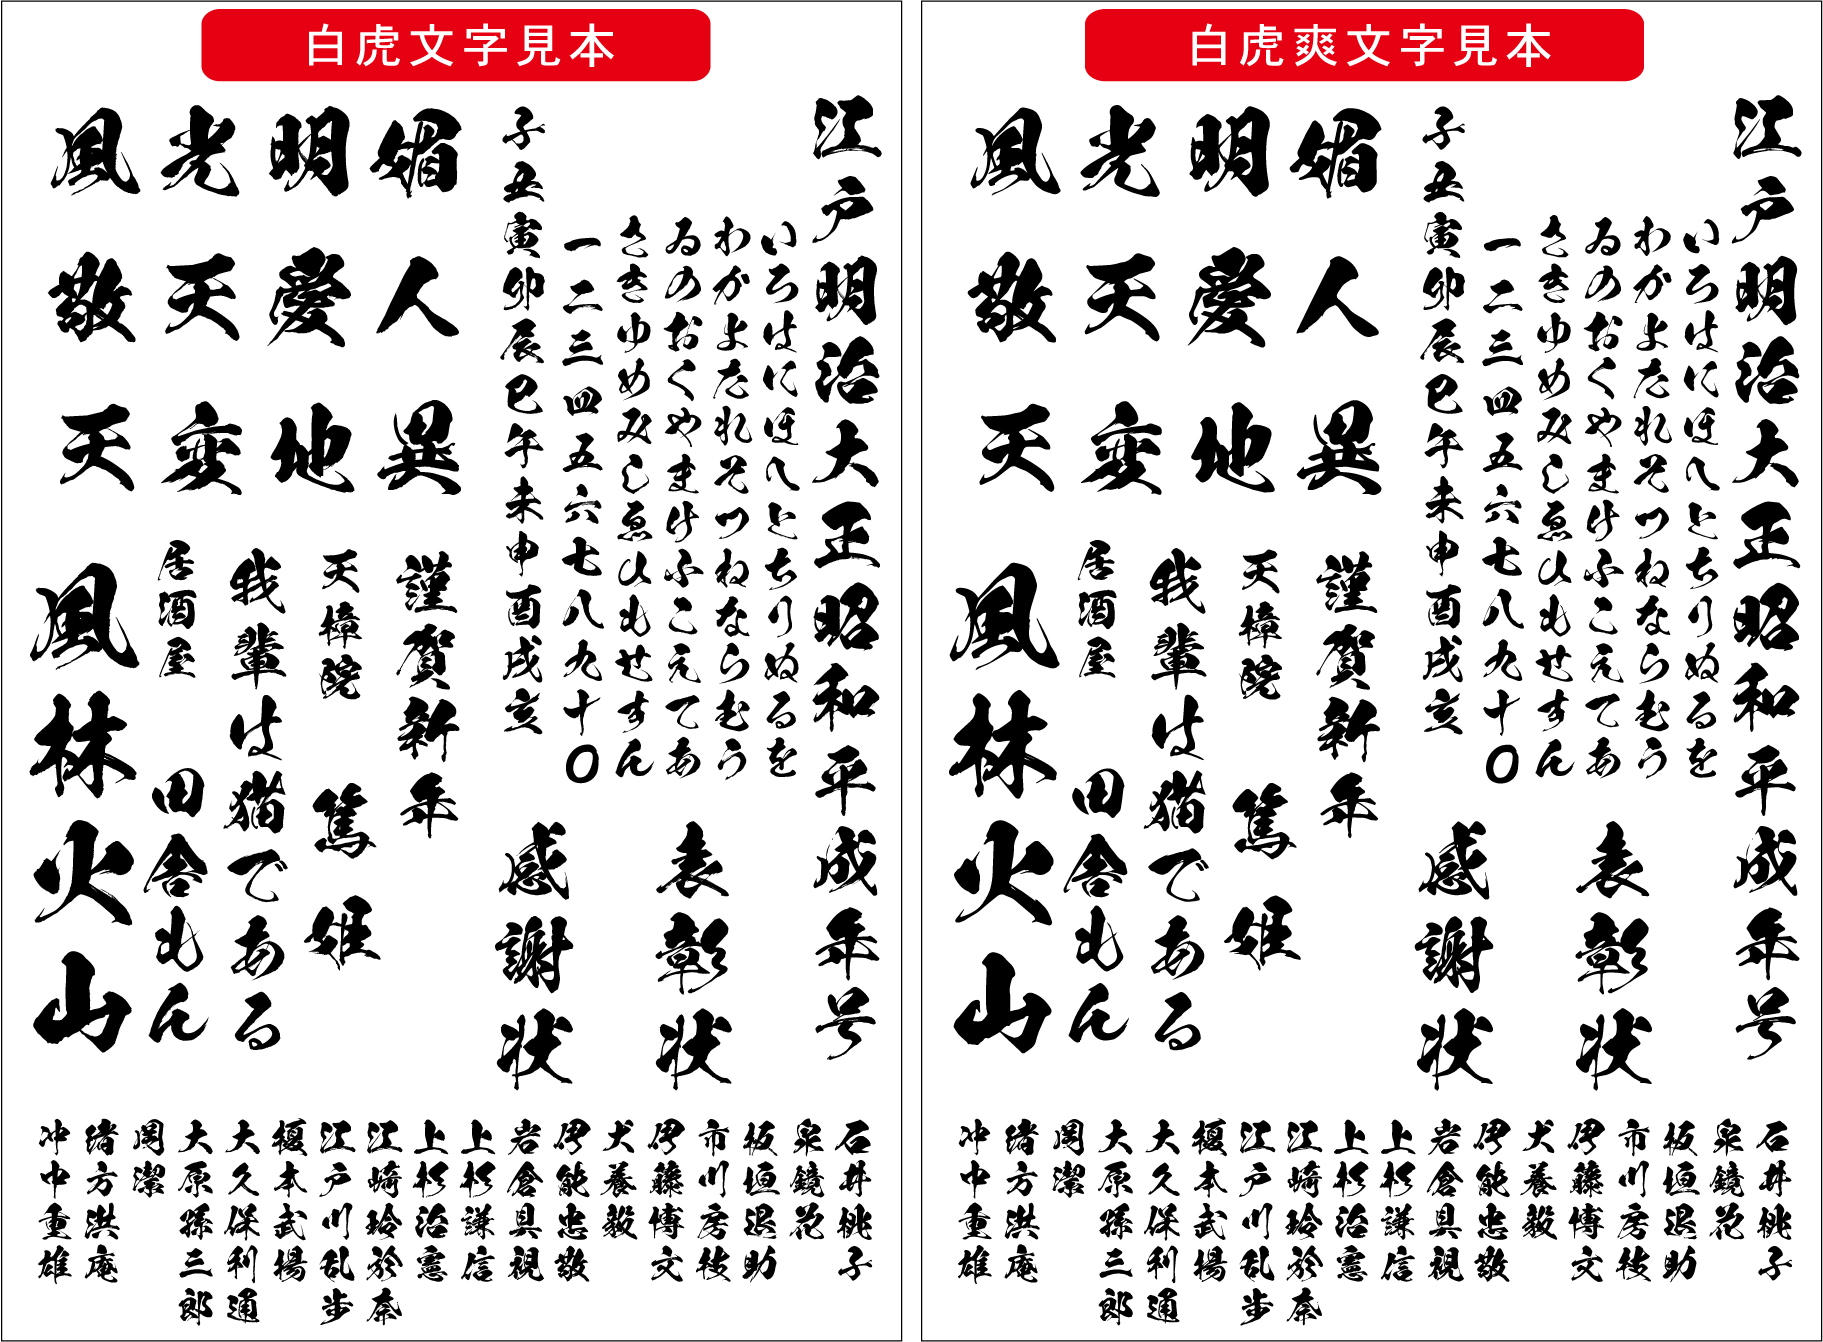 白虎文字見本
江戸明治大正昭和平成年号
いろはにほへとちりぬるを
わかよたれそつねならむう
ゐのおくやまけふこえてあ
さきゆめみしゑひもせすん
一二三四五六七八九十〇
子丑寅卯辰巳午未申酉戌亥
風光明媚
敬天愛人
天変地異
表彰状
感謝状
謹賀新年
天樟院
篤姫
我輩は猫である
居酒屋
田舎もん
風林火山
石井桃子
泉鏡花
板垣退助
市川房枝
伊藤博文
犬養毅
伊能忠敬
岩倉具視
上杉謙信
上杉治憲
江崎玲於奈
江戸川乱歩
榎本武揚
大久保利通
大原孫三郎
岡潔
緒方洪庵
冲中重雄
白虎爽文字見本
江戸明治大正昭和平成年号
いろはにほへとちりぬるを
わかよたれそつねならむう
ゐのおくやまけふこえてあ
さきゆめみしゑひもせすん
一二三四五六七八九十〇
子丑寅卯辰巳午未申酉戌亥
風光明媚
敬天愛人
天変地異
表彰状
感謝状
謹賀新年
天樟院
篤姫
我輩は猫である
居酒屋
田舎もん
風林火山
石井桃子
泉鏡花
板垣退助
市川房枝
伊藤博文
犬養毅
伊能忠敬
岩倉具視
上杉謙信
上杉治憲
江崎玲於奈
江戸川乱歩
榎本武揚
大久保利通
大原孫三郎
岡潔
緒方洪庵
冲中重雄